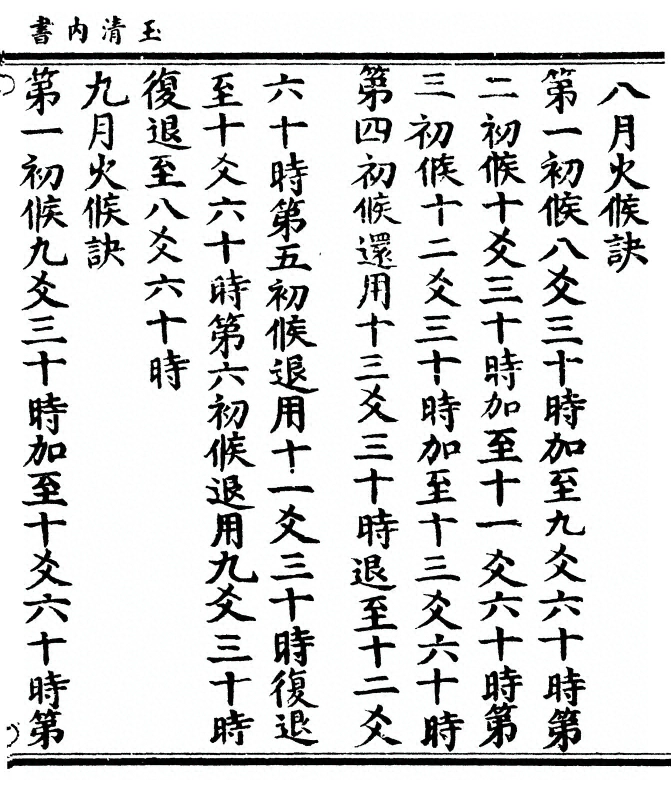 玉清内書
八月火候訣
第一初候八爻三十時加至九爻六十時第
二初候十爻三十時加至十一爻六十時第
三初候十二爻三十時加至十三爻六十時
第四初候還用十三爻三十時退至十二爻
六十時第五初候退用十一爻三十時復退
至十爻六十時第六初候退用九爻三十時
復退至八爻六十時
九月火候訣
第一初候九爻三十時加至十爻六十時第